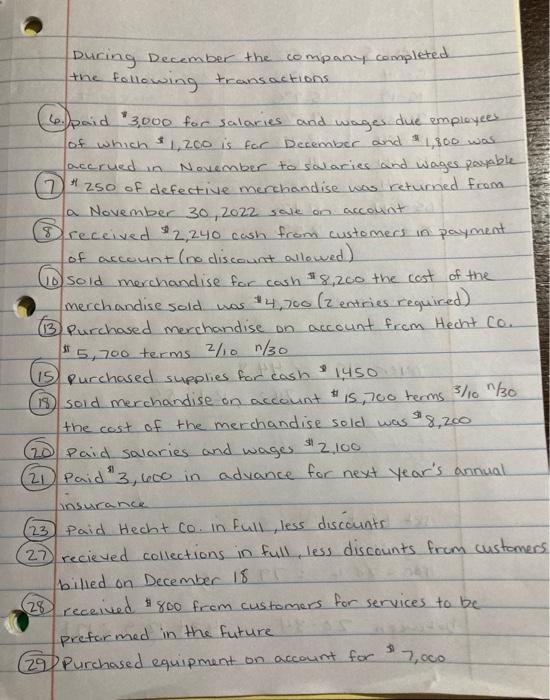 During December the company completed
the following transactions
6. paid $3,000 for salaries and wages due employees
of which $1,200 is for December and $1,800 was
accrued in November to salaries and wages payable
7 $250 of defective merchandise was returned from
a November 30, 2022 sale on account
8 received $2,240 cash from customers in payment
of account (no discount allowed)
10 sold merchandise for cash $8,200 the cost of the
merchandise sold was $4,700 (2 entries required)
13 purchased merchandise on account from Hecht Co.
$5,700 terms 2/10 n/30
15 purchased supplies for cash $1,450
18 sold merchandise on account $15,700 terms 3/10 n/30
the cost of the merchandise sold was $8,200
20 Paid salaries and wages $2,100
21 Paid $3,600 in advance for next year's annual
insurance
23 Paid Hecht Co. in full, less discounts
27 recieved collections in full, less discounts from customers
billed on December 18
28 received $800 from customers for services to be
preformed in the future
29 Purchased equipment on account for $7,000